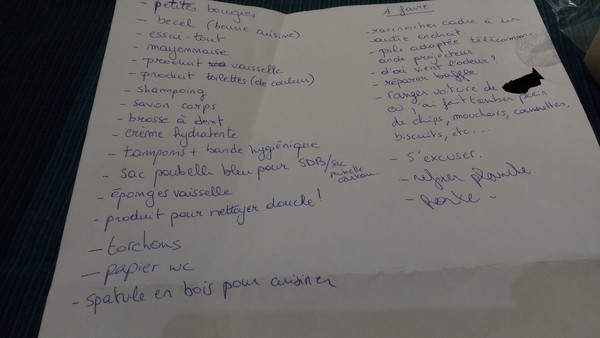 - petites bougies
- becel (beurre cuisine)
- essui-tout
- mayonnaise
- produit vaisselle
- produit toilettes (de couleur)
- shampoing
- savon corps
- brosse à dent
- crème hydratente
- tampons + bande hygiénique
- sac poubelle bleu pour SDB/sac
poubelle
- éponges vaisselle
- produit pour nettoyer douche!
- torchons
- papier wc
- spatule en bois pour cuisiner
À faire
- raccrocher cadre à un
autre endroit
- pile adaptée télécommande
projecteur
- d'où vient l'odeur?
- réparer baffle
- ranger voiture de
où j'ai fait tomber plein
de chips, mouchoirs, cannettes,
biscuits, etc....
- s'excuser.
- plante
- porte